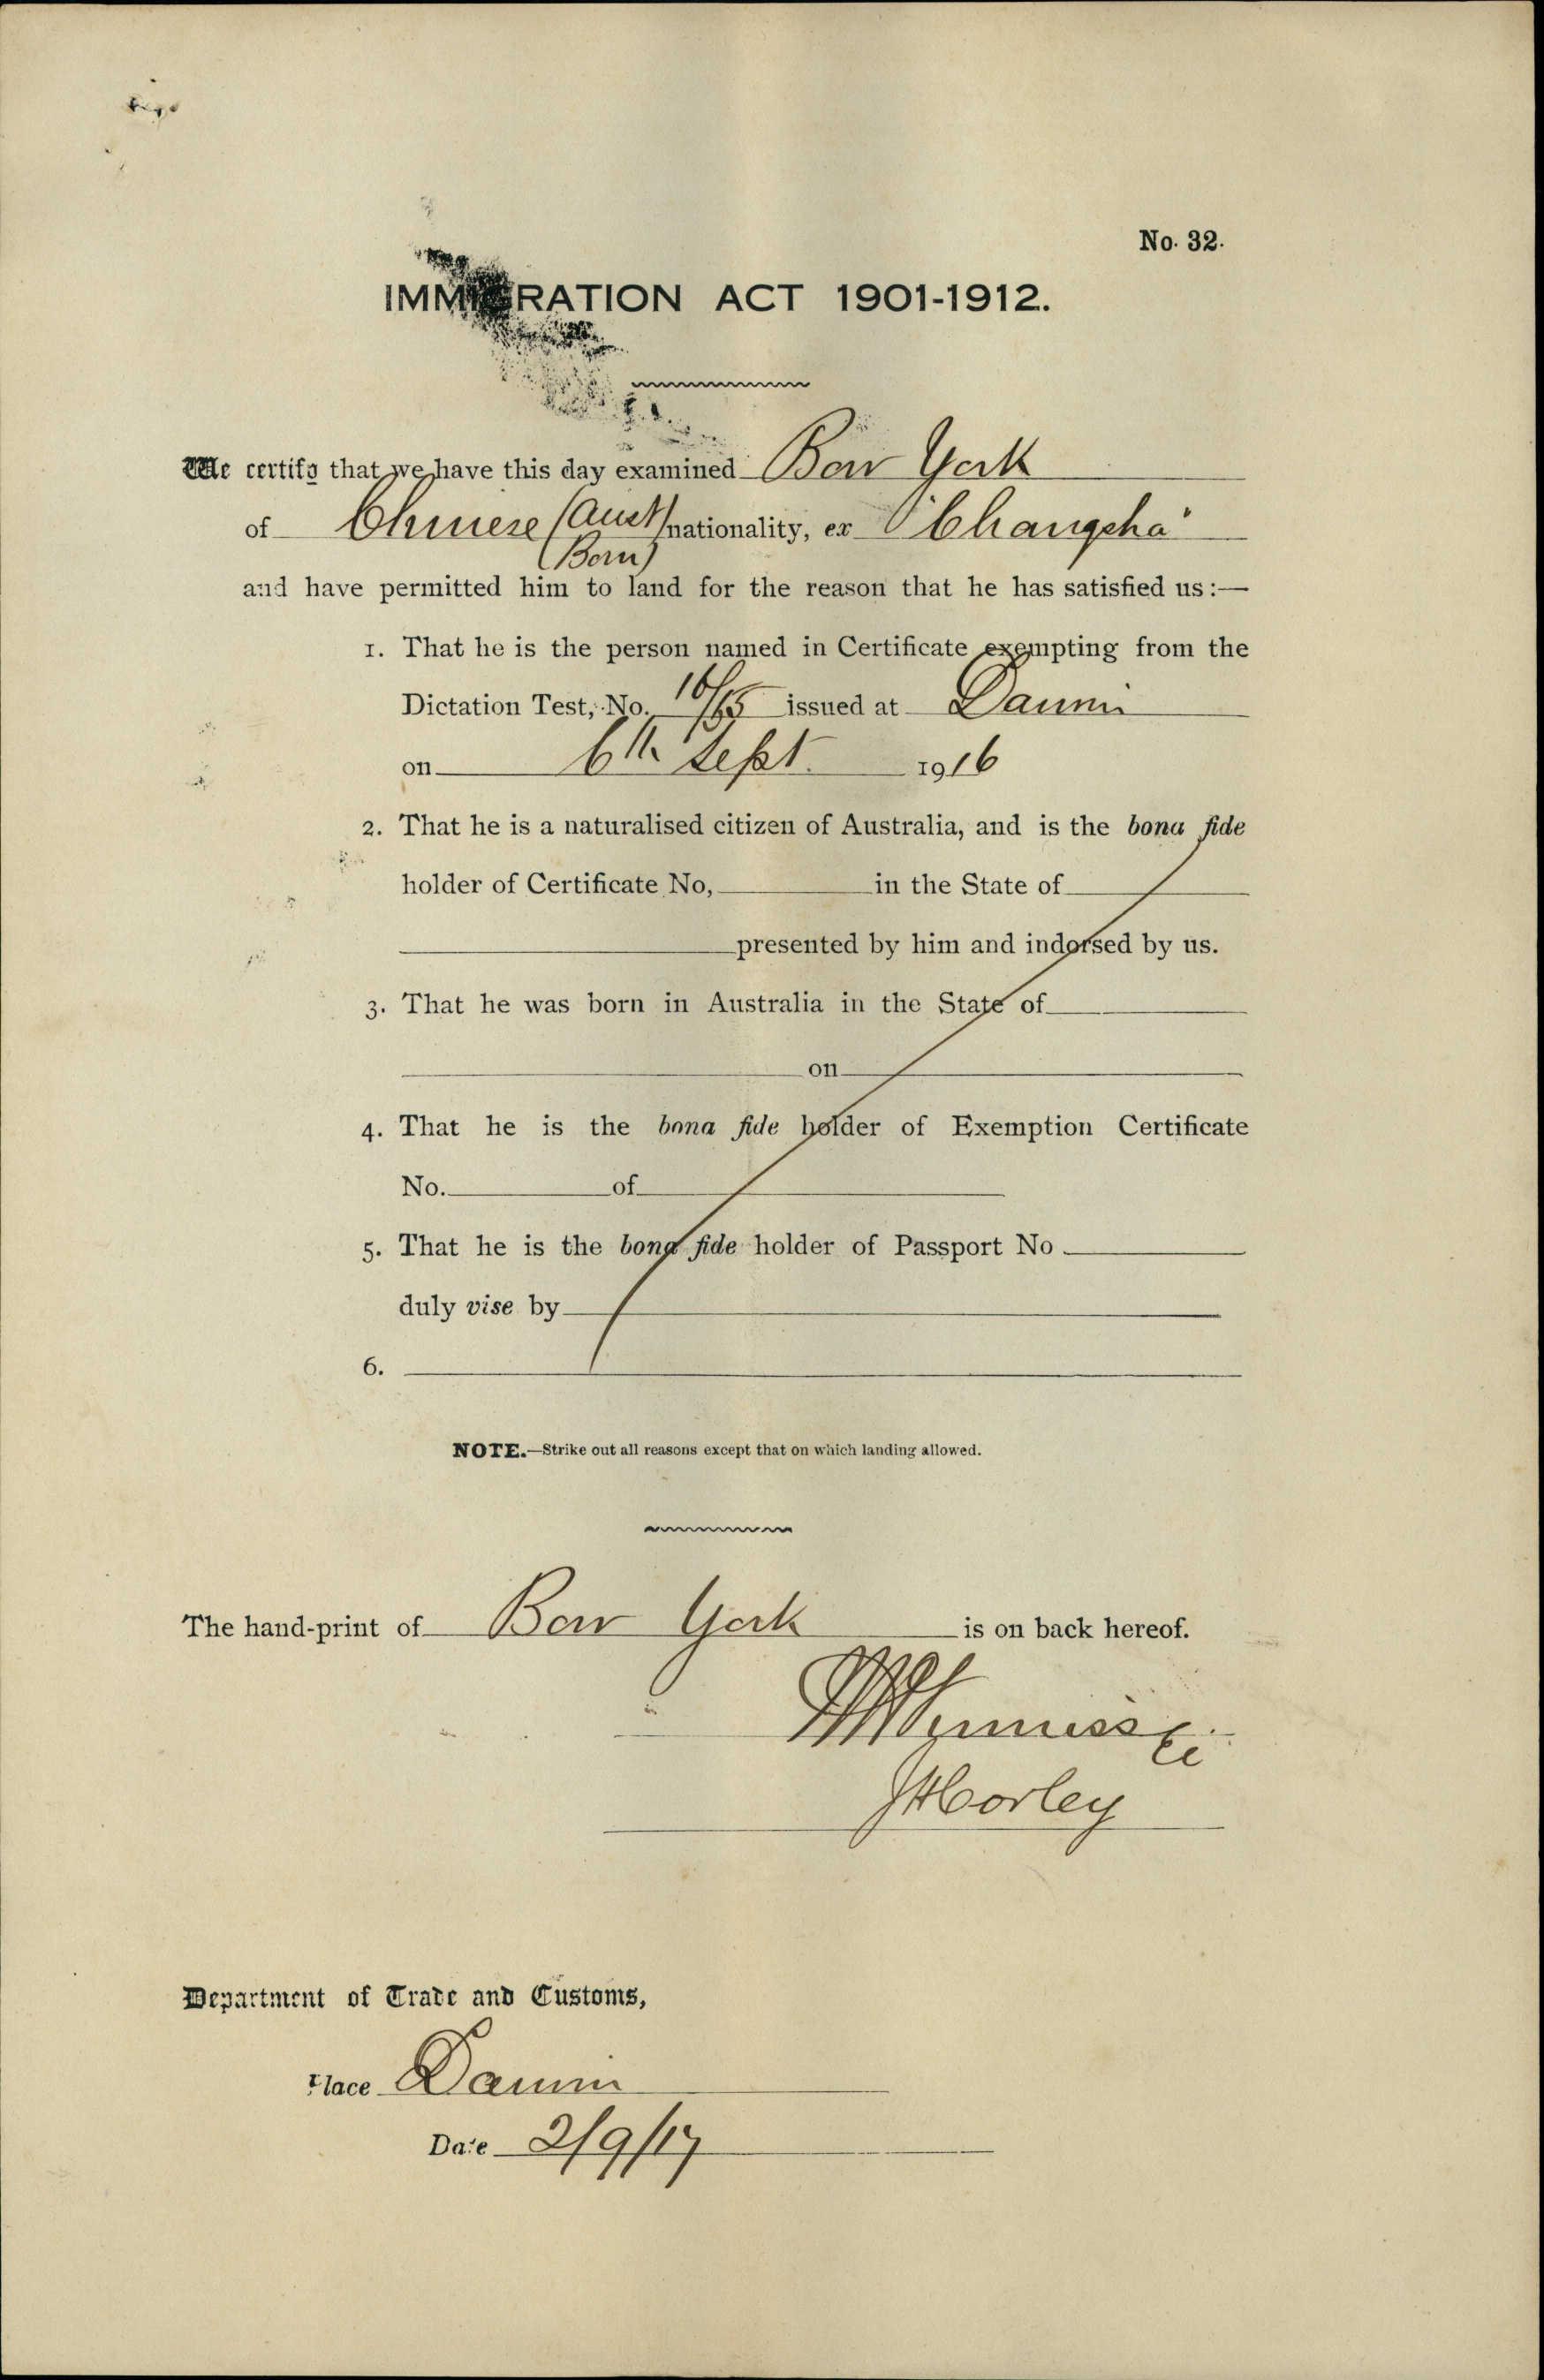 No. 32.
IMMIGRATION ACT 1901-1912.
We certify that we have this day examined Bow York
of Chinese (Aust nationality, ex "Changsha"
(Born)
and have permitted him to land for the reason that he has satisfied us:—
1. That he is the person named in Certificate exempting from the
Dictation Test, No. issued at Darwin
on 6th Sept. 1916
2. That he is a naturalised citizen of Australia, and is the bona fide
holder of Certificate No, in the State of
presented by him and indorsed by us.
3. That he was born in Australia in the State of
on
4. That he is the bona fide holder of Exemption Certificate
No. of
5. That he is the bona fide holder of Passport No
duly vise by
6.
NOTE.—Strike out all reasons except that on which landing allowed.
The hand-print of Bow York is on back hereof.
Department of Trade and Customs,
Place Darwin
Date 2/9/17